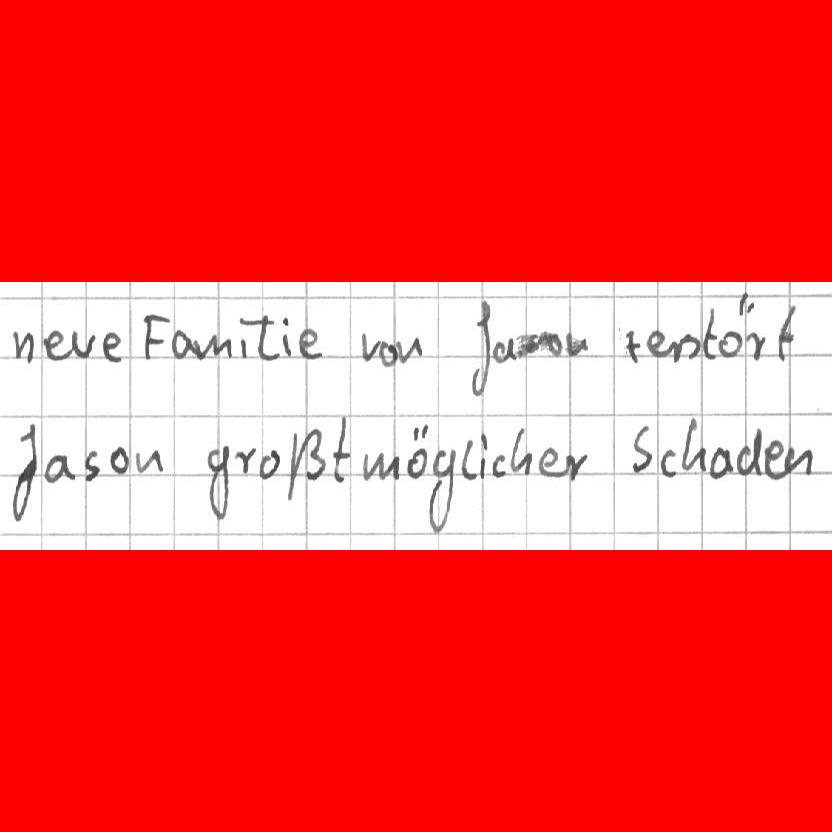 neue Familie von Jason zerstört
Jason großtmöglicher Schaden